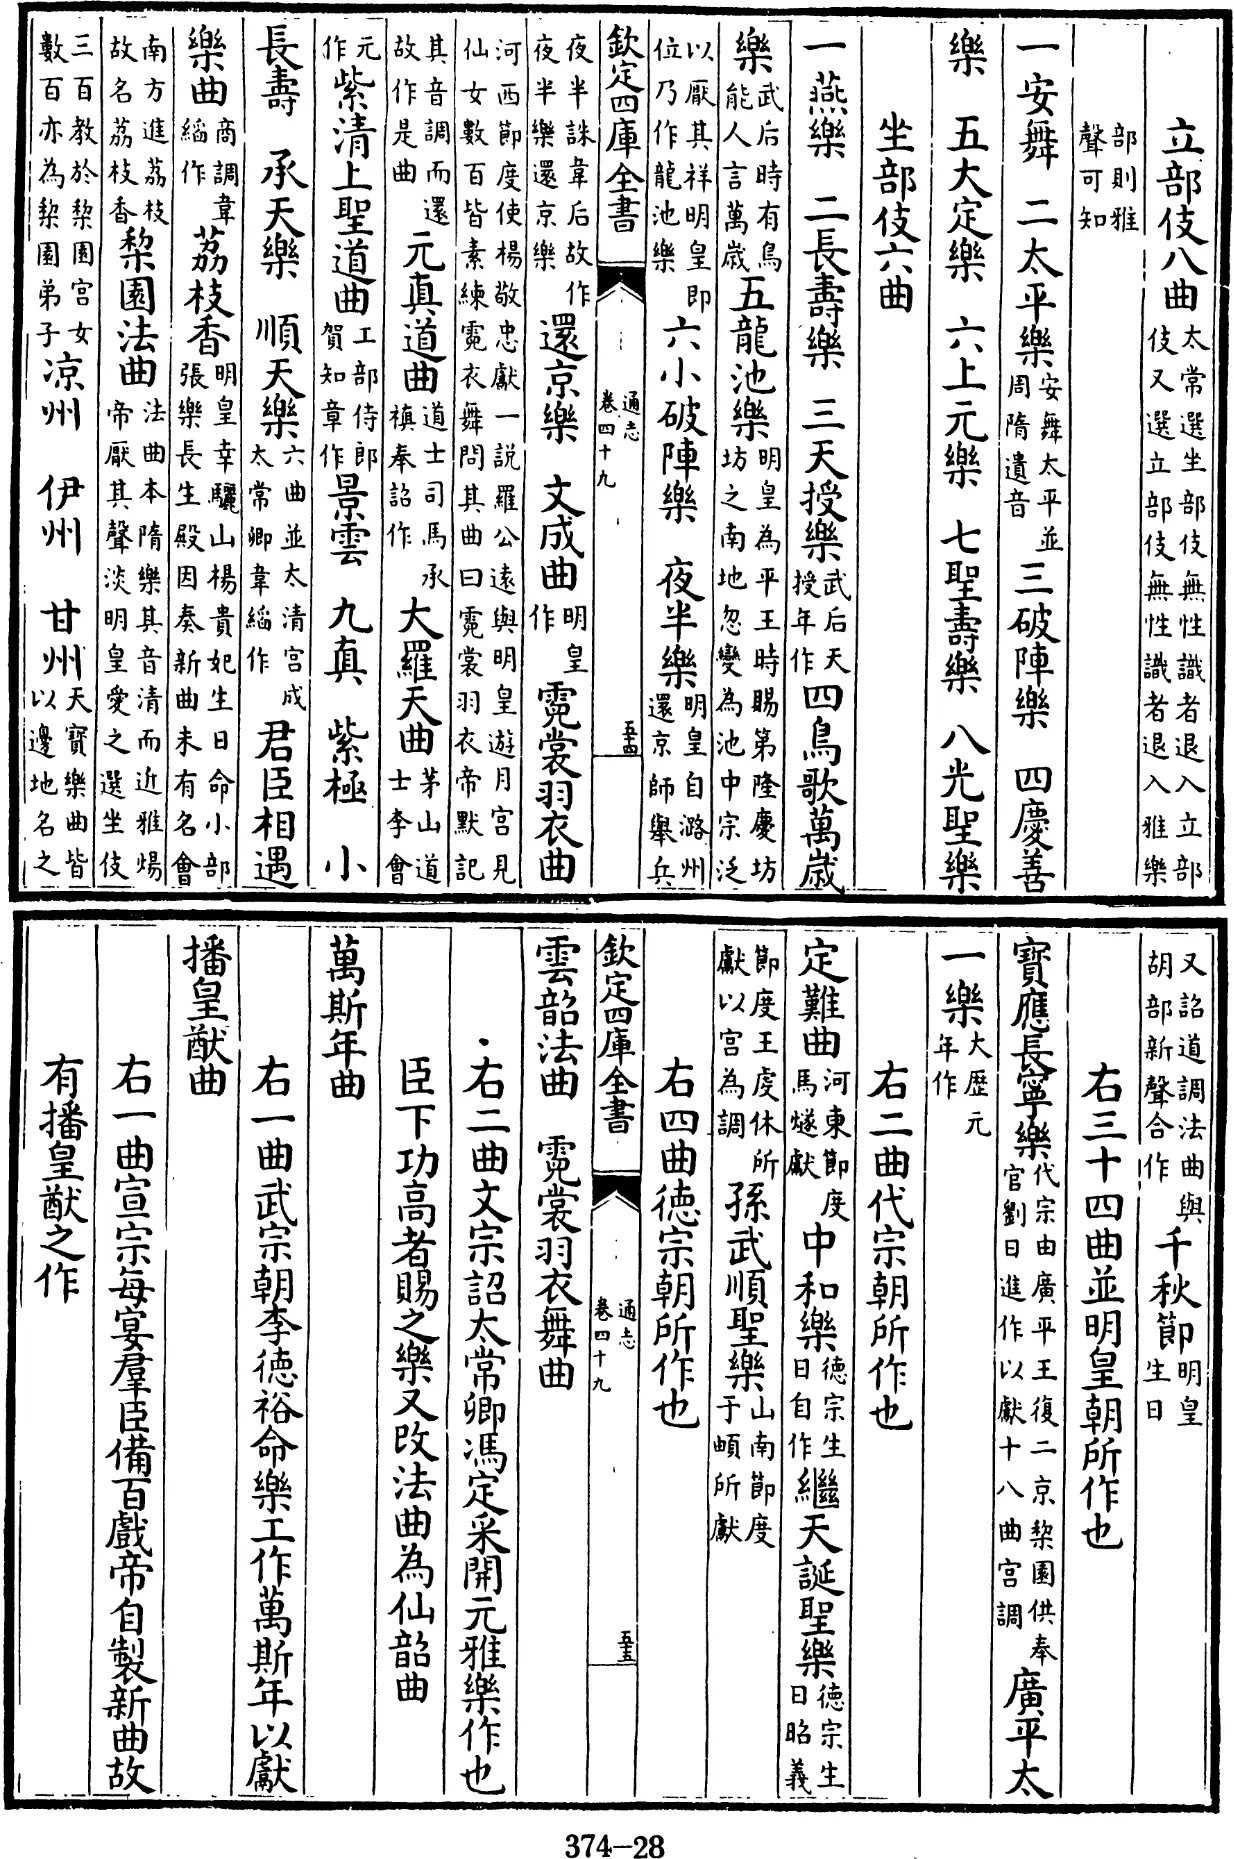 立部伎八曲太常選坐部伎無性識者退入立部伎又選立部伎無性識者退入雅樂
部則雅聲可知
一安舞　二太平樂安舞太平並周隋遺音　三破陣樂　四慶善
樂　五大定樂　六上元樂　七聖壽樂　八光聖樂
坐部伎六曲
一燕樂　二長壽樂　三天授樂武后天授年作　四鳥歌萬歲
樂武后時有鳥能人言萬歲　五龍池樂明皇為平王時賜第隆慶坊坊之南地忽變為池中宗泛
以厭其祥明皇即位乃作龍池樂　六小破陣樂　夜半樂明皇自潞州還京師舉兵
欽定四庫全書　通志卷四十九　五十四
夜半誅韋后故作夜半樂還京樂　還京樂　文成曲明皇作　霓裳羽衣曲
河西節度使楊敬忠獻一說羅公遠與明皇遊月宮見仙女數百皆素練霓衣舞問其曲曰霓裳羽衣帝默記
其音調而還故作是曲　元真道曲道士司馬承禎奉詔作　大羅天曲茅山道士李會
元作　紫清上聖道曲工部侍郎賀知章作　景雲　九真　紫極　小
長壽　承天樂　順天樂六曲並太清宮成太常卿韋縚作　君臣相遇
樂曲商調韋縚作　荔枝香明皇幸驪山楊貴妃生日命小部張樂長生殿因奏新曲未有名會
南方進荔枝故名荔枝香　梨園法曲法曲本隋樂其音清而近雅煬帝厭其聲淡明皇愛之選坐伎
三百教於梨園宮女數百亦為梨園弟子　涼州　伊州　甘州天寶樂曲皆以邊地名之
又詔道調法曲與胡部新聲合作　千秋節明皇生日
右三十四曲並明皇朝所作也
寶應長寧樂代宗由廣平王復二京梨園供奉官劉日進作以獻十八曲宮調　廣平太
一樂大歷元年作
右二曲代宗朝所作也
定難曲河東節度馬燧獻　中和樂德宗生日自作　繼天誕聖樂德宗生日昭義
節度王虔休所獻以宮為調　孫武順聖樂山南節度于頔所獻
右四曲德宗朝所作也
欽定四庫全書　通志卷四十九　五十五
雲韶法曲　霓裳羽衣舞曲
右二曲文宗詔太常卿馮定采開元雅樂作也
臣下功高者賜之樂又改法曲為仙韶曲
萬斯年曲
右一曲武宗朝李德裕命樂工作萬斯年以獻
播皇猷曲
右一曲宣宗每宴羣臣備百戲帝自製新曲故
有播皇猷之作
374-28